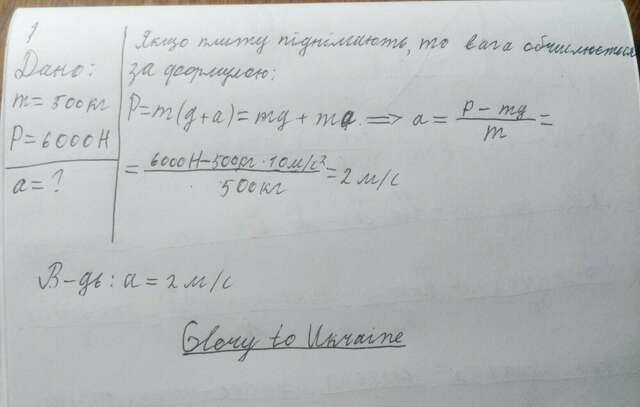 1
Дано:
m = 500кг
P = 6000Н
a = ?
Якщо плиту піднімають, то вага обчислюється
за формулою:
P = m(g+a) = mg + ma. => a = \frac{P - mg}{m} =
= \frac{6000Н - 500кг · 10м/с²}{500кг} = 2 м/с
В-дь: a = 2 м/с
Glory to Ukraine